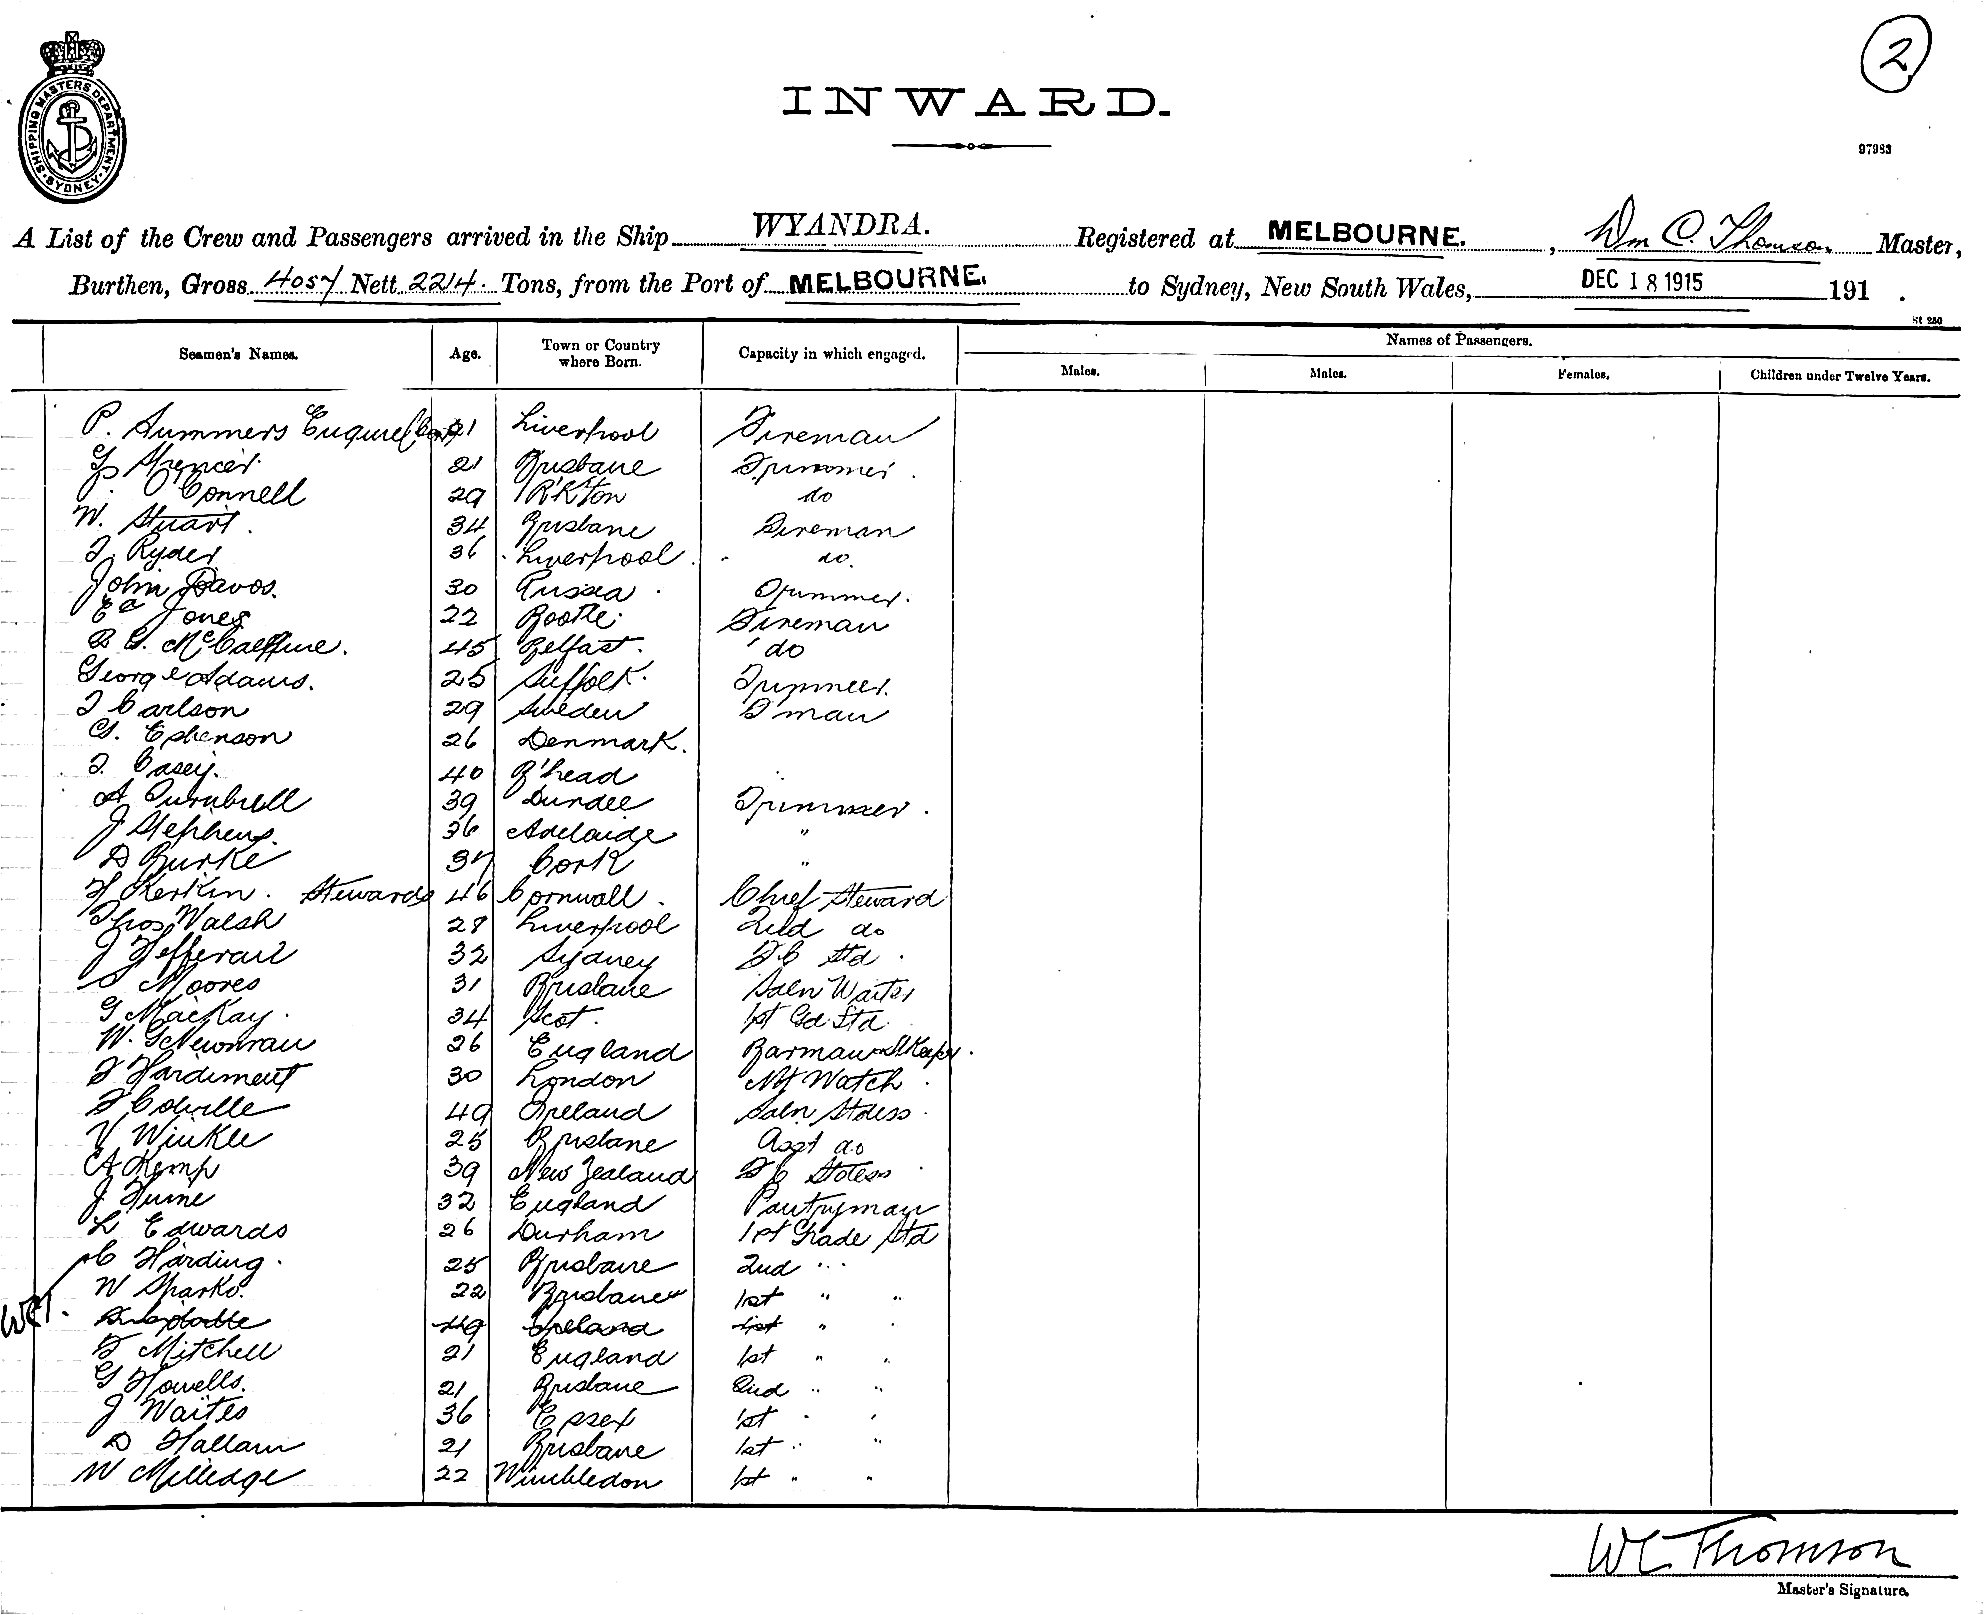 2
INWARD.
SHIPPING MASTERS DEPARTMENT SYDNEY
97983
A List of the Crew and Passengers arrived in the Ship WYANDRA. Registered at MELBOURNE. , Wm C. Thomson Master,
Burthen, Gross 4057 Nett 2214. Tons, from the Port of MELBOURNE. to Sydney, New South Wales, DEC 18 1915 191 .
St 250
Seamen's Names. Age. Town or Country where Born. Capacity in which engaged. Names of Passengers.
Males. Males. Females. Children under Twelve Years.
P. Summers 21 Liverpool Fireman
Spencer 21 Brisbane Trimmer.
Connell 29 R'K'Ton do
W. Stuart. 34 Brisbane Fireman
T. Ryder 36 Liverpool. do.
John 30 Russia. Trimmer.
Ed Jones 22 Bootle. Fireman
45 Belfast. do
George Adams. 25 Suffolk. Trimmer.
T Carlson 29 Sweden F'man
G. 26 Denmark.
T. Casey. 40 B'head
A Turnbull 39 Dundee Trimmer.
J Stephens. 36 Adelaide "
D Burke 37 Cork "
Kerkin. Stewards 46 Cornwall. Chief Steward
Thos Walsh 28 Liverpool 2nd do
J 32 Sydney F C Std.
Moores 31 Brisbane Saln Waiter
G MacKay. 34 Scot. 1st Gd Std
W. G Newman 26 England Barman
Hardiment 30 London Nt Watch.
Colville 49 Ireland Saln Stdess.
V Winkle 25 Brisbane Asst do
A Kemp 39 New Zealand F C Stdess.
J 32 England Pantryman
L Edwards 26 Durham 1st Grade Std
C Harding. 25 Brisbane 2nd " "
W Sparks. 22 Brisbane 1st " "
WCT. 49 Ireland 1st "
F Mitchell 21 England 1st " "
G Howells. 21 Brisbane 2nd " "
J Waites 36 Essex 1st " "
D Hallam 21 Brisbane 1st " "
W Milledge 22 Wimbledon 1st " "
WC Thomson
Master's Signature.